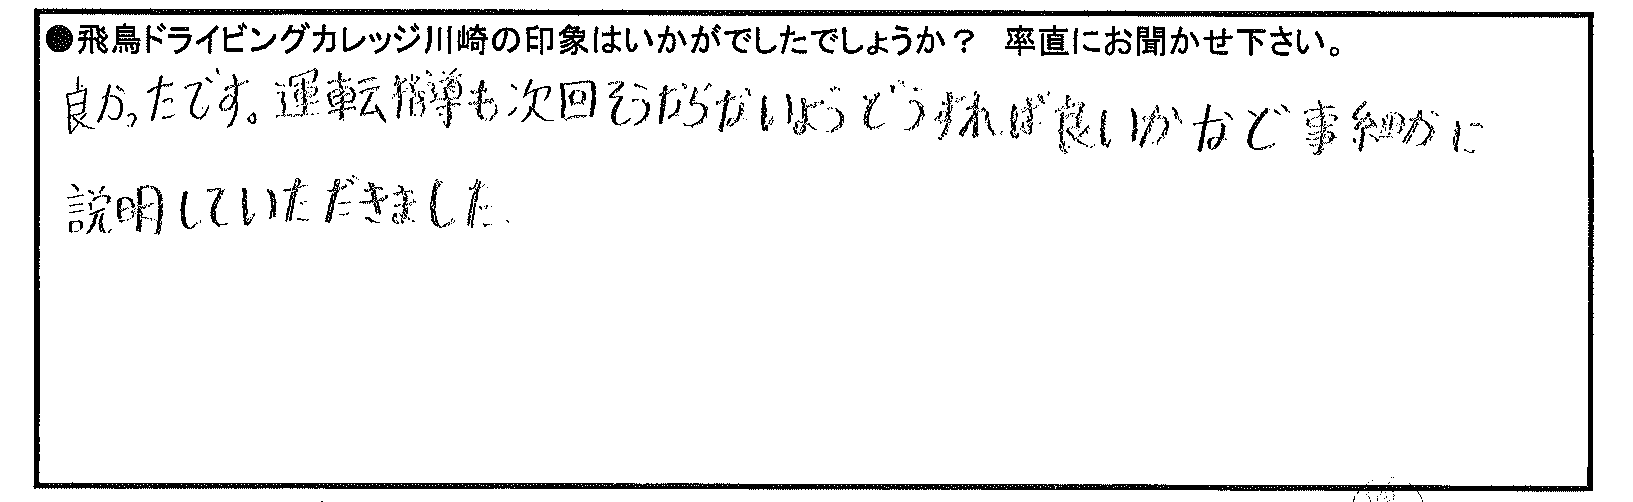 ●飛鳥ドライビングカレッジ川崎の印象はいかがでしたでしょうか？　率直にお聞かせ下さい。
良かったです。運転指導も次回そうならないようどうすれば良いかなど事細かに
説明していただきました.